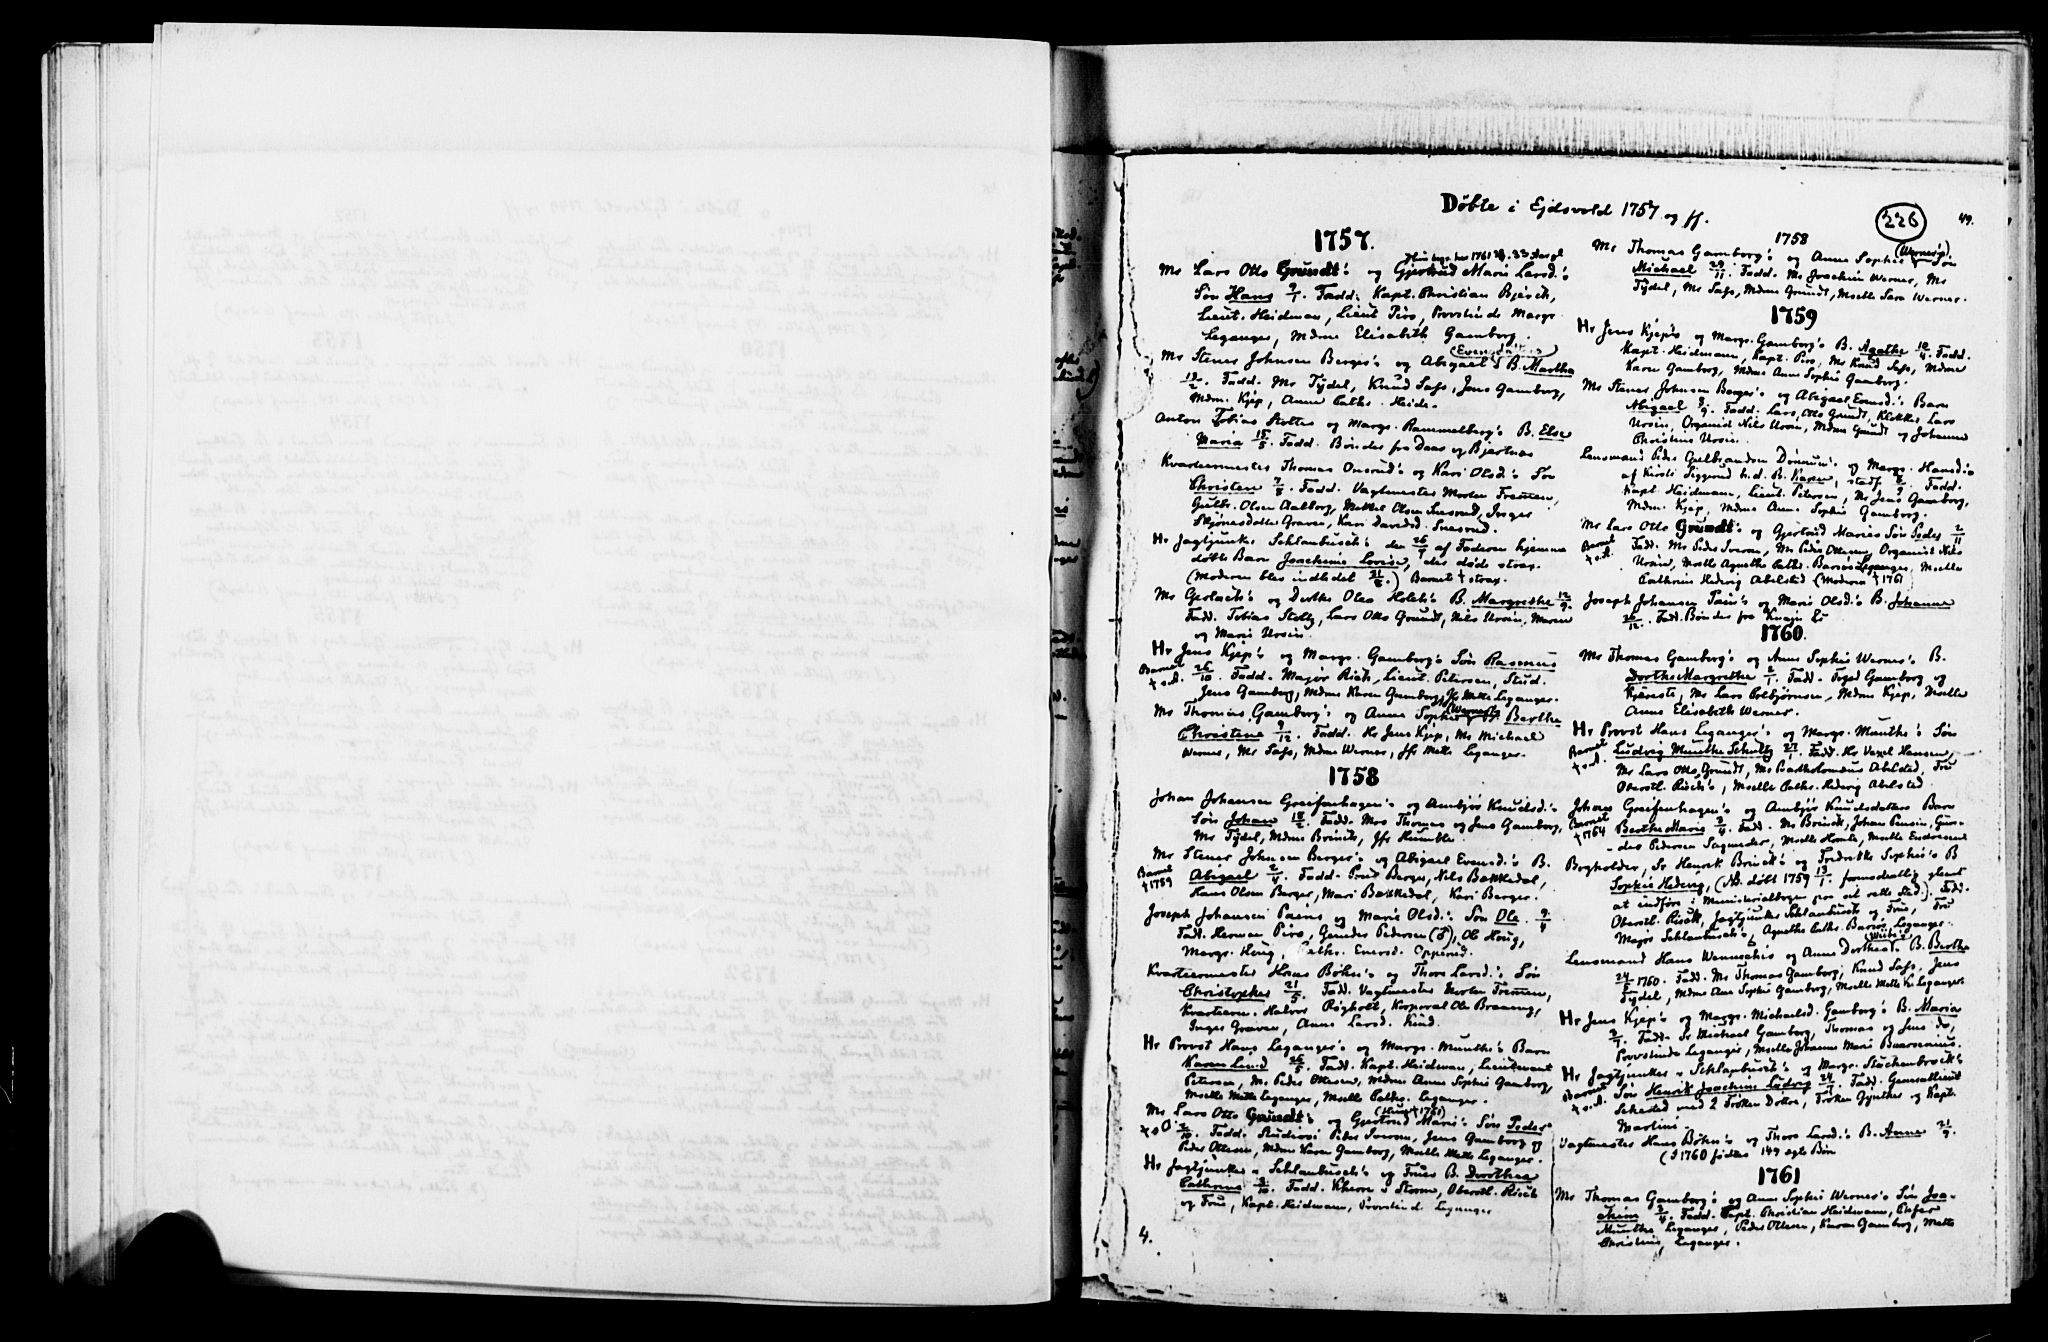 Døbte i Ejdsvold 1757 og ff.
226
49.
1757.
Mr Lars Otto Grundt's og Gjertrud Marie Larsd.'s
Søn Hans 9/1. Fadd. Kapt. Christian Bjerch,
Lieut. Heidman, Lieut Piro, Provstinde Margr.
Leganger, Mdme Elisabeth Gamborg.
Mr Stener Johnsen Berger's og Abigael (Evensdatter) B. Martha
13/2. Fadd. Mr Tydel, Knud Safs, Jens Gamborg,
Mdm. Kjep, Anne Cathr. Heide.
Anton Tobias Stoltes og Margr. Rammelberg's B. Else
Maria 15/5. Fadd. Bønder fra Daas og Bjertnæs
Kvartermester Thomas Onsrud's og Kari Olsd.'s Sø
Christen 7/8. Fadd. Vagtmester Morten Tremen,
Gulbr. Olsen Aalborg, Mikkel Olsen Snesrud, Inger
Skjønesdatter Graver, Kari Davidsd. Snesrud.
Hr Jagtjunker Schlanbusch's den 26/7 af Faderen hjemme
døbte Barn Joachime Lovise, der døde strax.
(Moderen blev indledet 21/8.) Barnet † strax.
Mr Gerlach's og Dorthe Olea Holch's B. Margrethe 12/9.
Fadd. Tobias Stoltz, Lars Otto Grundt, Nils Ursin, Maren
og Marie Ursin.
Hr Jens Kjep's og Margr. Gamborg's Søn Rasmus
Barnet † s.d. 26/10. Fadd. Major Rich, Lieut. Petersen, Stud.
Jens Gamborg, Mdme Karen Gamborg, Jfr Mette Leganger.
Mr Thomas Gamborg's og Anne Sophie (Werner's) B. Berthe
Christine 9/12. Fadd. Hr Jens Kjep, Mr Michael
Werner, Mr Safs, Mdme Werner, Jfr Mette Leganger.
1758
Johan Johansen Greifenhagen's og Anbjør Knudsd.'s
Søn Johan 18/2. Fadd. Mrs Thomas og Jens Gamborg,
Mr Tydel, Mdme Brinck, Jfr Humble.
Mr Stener Johnsen Berger's og Abigael Evensd.'s B.
Barnet † 1759 Abigael 2/4. Fadd. Poul Berger, Nils Bakkedal,
Hans Olsen Berger, Mari Bakkedal, Kari Berger.
Joseph Johansen Pains og Marie Olsd.'s Søn Ole 9/4
Fadd. Herman Piro, Gunder Pedersen, Ole Houg,
Margr. Houg, Cathr. Enersd. Opperud.
Kvartermester Hans Bøhn's og Thore Larsd.'s Søn
Christopher 21/5. Fadd. Vagtmester Morten Tremen,
Kvarterm. Halvor Røgholt, Korporal Ole Braaeng,
Inger Graven, Anne Larsd. Rud.
Hr Provst Hans Leganger's og Margr. Munthe's Barn
Karen Lucie 26/5. Fadd. Kapt. Heidman, Lieutenant
Petersen, Mr Peder Ottesen, Mdme Anne Sophie Gamborg,
Mselle Mette Leganger, Mselle Cathr. Leganger.
Mr Lars Otto Grundt's og Gjertrud Marie's (Hun † 1761) Søn Peder
2/10. Fadd. Studiosi Peder Iversen, Jens Gamborg og
Peder Ottesen, Mdme Karen Gamborg, Mselle Mette Leganger.
Hr Jagtjunker v. Schlanbusch's og Frues B. Dorothea
Cathrine 3/10. Fadd. Kherre v Storm, Oberstl. Risck
og Frue, Kapt. Heidmann, Provstinde Leganger
4.
1758
Mr Thomas Gamborg's og Anne Sophie (Werner's) Søn
Michael 29/11. Fadd. Mr Joachim Werner, Mr
Tydel, Mr Safs, Mdme Grundt, Mselle Sara Werner.
1759
Hr Jens Kjep's og Margr. Gamborg's B. Agathe 10/4. Fadd.
Kapt. Heidmann, Kapt. Piro, Mr Knud Safs, Mdme
Karen Gamborg, Mdme Anne Sophie Gamborg.
Mr Stener Johnsen Berger's og Abigael Evensd.'s Barn
Abigael 9/9. Fadd. Lars Otto Grundt, Klokker Lars
Ursin, Organist Nils Ursin, Mdme Grundt og Johanne
Christine Ursin.
Lensmand Peder Gulbrandsen Dønnum's og Margr. Hansd.'s
Kapt. Heidmann, Lieut. Petersen, Mr Jens Gamborg,
Mdm. Kjep, Mdme Anne Sophie Gamborg.
Mr Lars Otto Grundt's og Gjertrud Maries Søn Peder 2/11
Barnet † s.d. Fadd. Mr Peder Iversen, Mr Peder Ottesen, Organist Nils
Ursin, Mselle Agnethe Cathr. Barsøe Leganger, Mselle
Cathrine Hedevig Abelsted (Moderen † 1761
Joseph Johansen Pain's og Marie Olsd.'s B. Johanne
26/12. Fadd. Bønder fra
1760.
Mr Thomas Gamborg's og Anne Sophie Werner's B.
Dorthe Margrethe 2/1. Fadd. Foged Gamborg og
Kjæreste, Mr Lars Colbjørnsen, Mdme Kjep, Mselle
Anne Elisabeth Werner.
Hr Provst Hans Leganger's og Margr. Munthe's Søn
Barnet † s.d. Ludvig Munthe Schultz. Fadd. Hr Vexel Hansen,
Mr Lars Otto Grundt, Mr Bartholomæus Abelsted, Fru
Oberstl. Risck's, Mselle Cathr. Hedevig Abelsted.
Johan Greifenhagen's og Anbjør Knudsdatters Barn
Barnet † 1764 Berthe Marie 3/4. Fadd. Mr Brinck, Johan Pensin, Gun-
der Pedersen Sagmester, Mselle Humle, Mselle Endresend
Borgholder, Sr Henrik Brinck's og Fredrikke Sophie's B
Sophie Hedevig, (NB. døbt 1759 13/1. formodentlig glemt
at indføre i Ministerialbogen paa sit rette Sted.). Fadd.
Oberstl. Risck, Jagtjunker Schlanbusch og Frue, Fru
Major Schlanbusch's, Agnethe Cathr. Barsøe Leganger.
Lensmand Hans Wennechis og Anne Dorthea (Wiibe's) B. Berthe
24/5 1760. Fadd. Mr Thomas Gamborg, Knud Safs, Jens
Tydel, Mdme Ane Sophie Gamborg, Mselle Mette Kr. Leganger.
Hr Jens Kjep's og Margr. Michaelsd. Gamborg's B. Maria
2/7. Fadd. Sr Michael Gamborg, Thomas og Jens do,
Provstinde Leganger, Mselle Johanne Marie Buarsenius.
Hr Jagtjunker v Schlanbusch's og Margr. Stuckenbrock's
Barnet † s.d. Søn Henrik Joachim Ludvig 24/7. Fadd. Generallieut
Sehested med 2 Frøken Døttre, Frøken Gynther og Kapt.
Martini.
Vagtmester Hans Bøhn's og Thore Larsd.'s B. Anne 21/9.
(I 1760 fødtes 149 ægte Børn
1761
Mr Thomas Gamborg's og Anne Sophie Werner's Søn Joa-
chim 2/4. Fadd. Kapt. Christian Heidmann, Peter
Munthe Leganger, Peder Ottesen, Karen Gamborg, Mette
Christine Leganger.